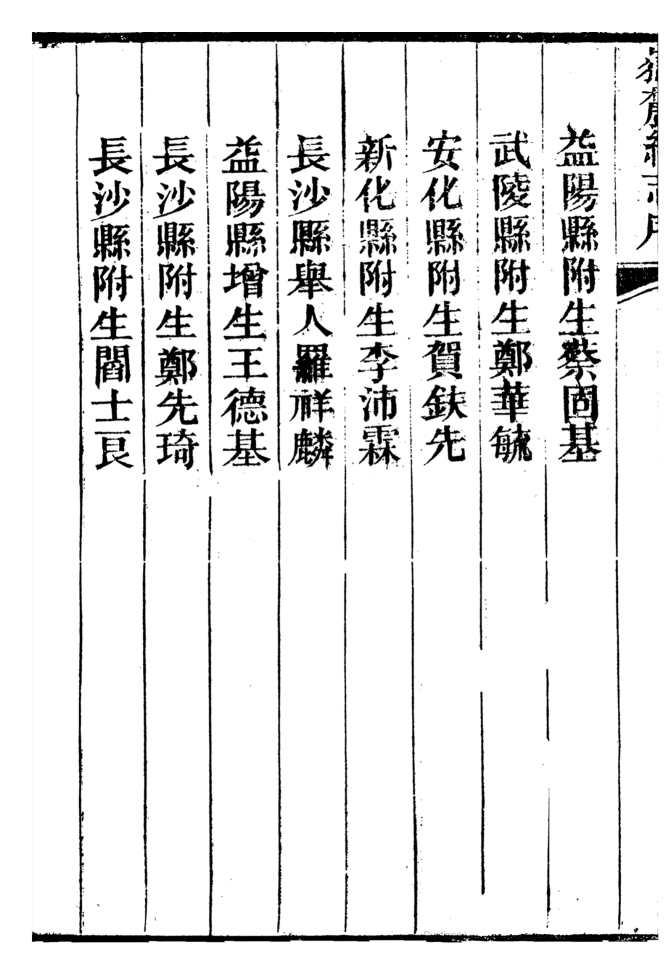 益陽縣附生蔡固基
武陵縣附生鄭華毓
安化縣附生賀鈇先
新化縣附生李沛霖
長沙縣舉人羅祥麟
益陽縣增生王德基
長沙縣附生鄭先琦
長沙縣附生閻士良